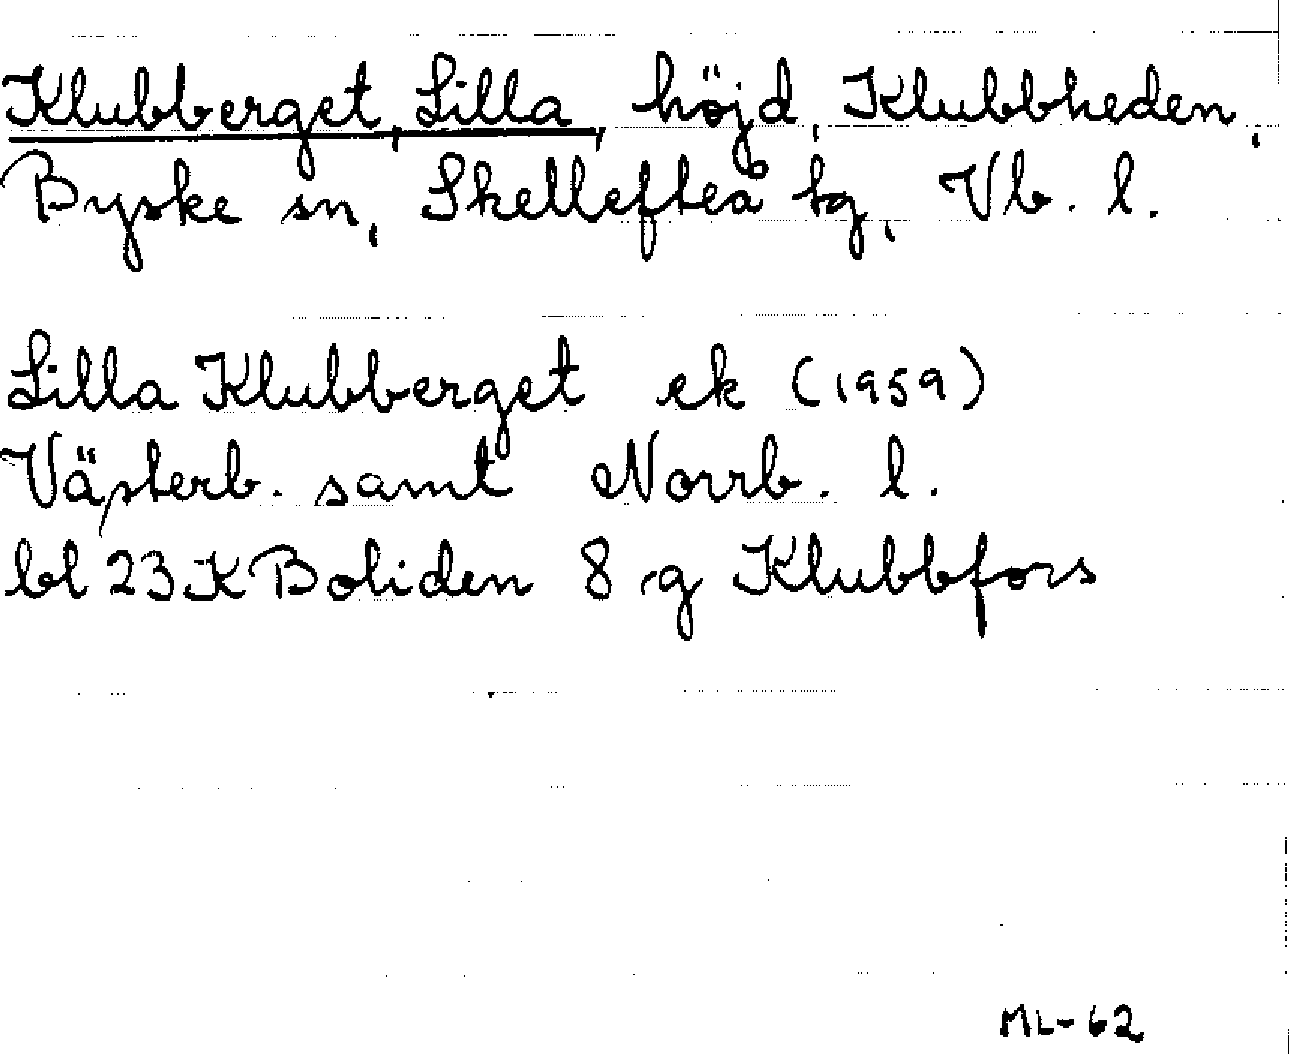 Klubberget, Lilla, höjd, Klubbheden,
Byske sn, Skellefteå tg, Vb. l.
Lilla Klubberget ek (1959)
Västerb. samt Norrb. l.
bl 23 K Boliden 8 g Klubbfors
ML-62